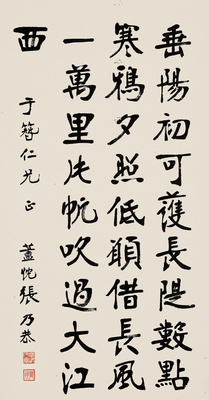 垂陽初可護長隄數點
寒鴉夕照低願借長風
一萬里片帆吹過大江
西
于簃仁兄 正
藎忱張乃恭